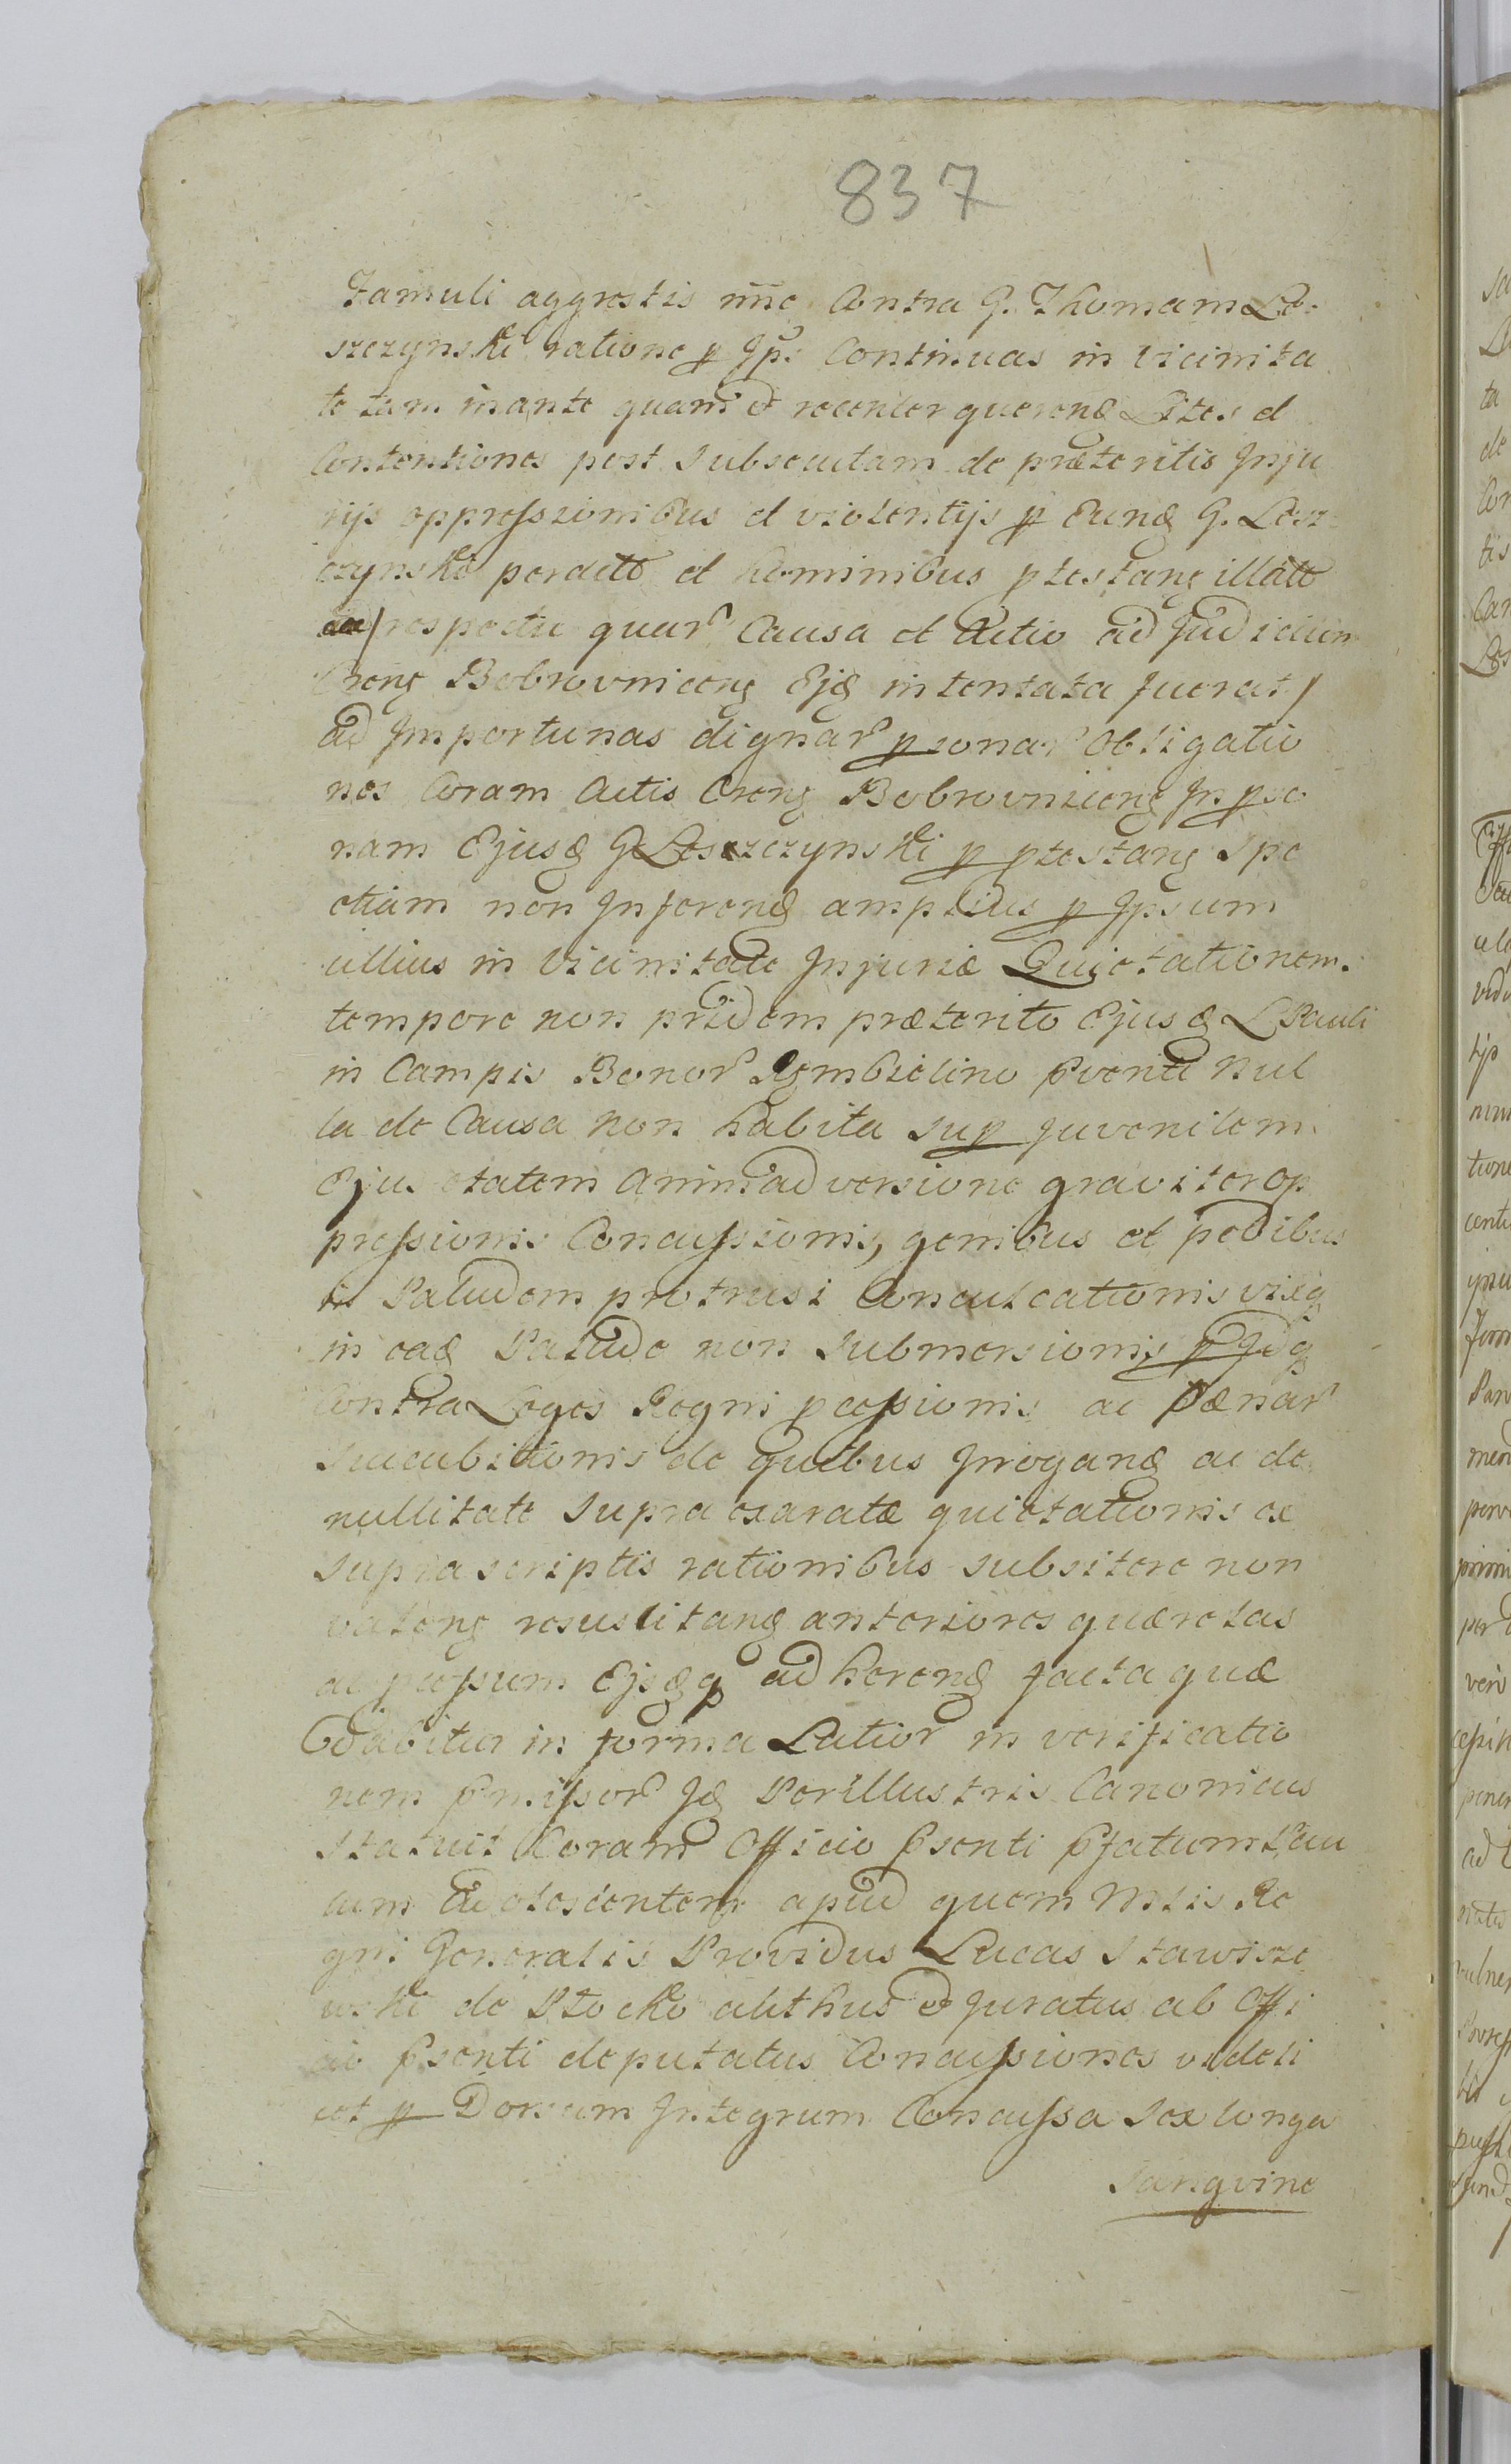 837
Famuli aggrestis nne Contra G. Thomam Le-
szczynski ratione p Ips: Continuas in Vicinita
te tam in ante quam et recenter querend Lites et
Contentiones post subsecutam de præteritis Inju
rijs oppressionibus et violentijs p Eund G. Lesz-
czynski perditto et hominibus ptestang illatto
respectu quar Causa et Actio ad Judicium
Crens Bobrovnicens Ejg intentata fuerat/
ad Importunas dignar psonar Obligatio
nes Coram Actis Crens Bobrovnicens In pso
nam Ejusd G Leszczynski p ptestang Spe
ctiam non Inferend amplius p Ipsum
ullius in Vicinitate Injuriæ Quietationem.
tempore non pridem præterito Ejusd L Pauli
in Campis Bonor Rembielino pventi Nul
la de Causa non habita sup juvenilem
Eju etatem animadversione graviter op
pressionis Concussionis, genibus et pedibus
in Paludem protrusi Conculcationis vixq
in ead Palude non Submersionis p Idq
Contra Leges Regni pcessionis ac Pænar
Succubitionis de quibus Irrogand ac de
nullitate Supra exaratæ quietationis ex
suprascriptis rationibus subsitere non
valens resuscitand anteriores quærelas
ac pcessum Ejsdq adherend facta quæ
dabitur in forma Latior in verificatio
nem pmissor Id Perillustris Canonicus
Statuit Coram Officio psenti pfatum Pau
lum Adolescentem apud quem Mtis Re
gni Generalis Providus Lucas Stawisze
wski de Płocko authus et Juratus ab Offi
cio psenti deputatus Concussiones videli
cet p Dorsum Integrum Concussa Sex longa
Sangvine